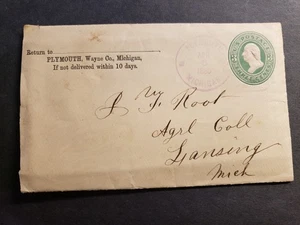 Return to
PLYMOUTH, Wayne Co., Michigan,
If not delivered within 10 days.
Root
Agrl Coll
Lansing
Mich